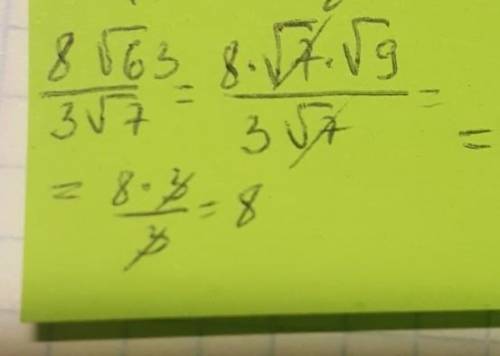 8√63 / 3√7 = 8·√7·√9 / 3√7 =
= 8·3 / 3 = 8
=